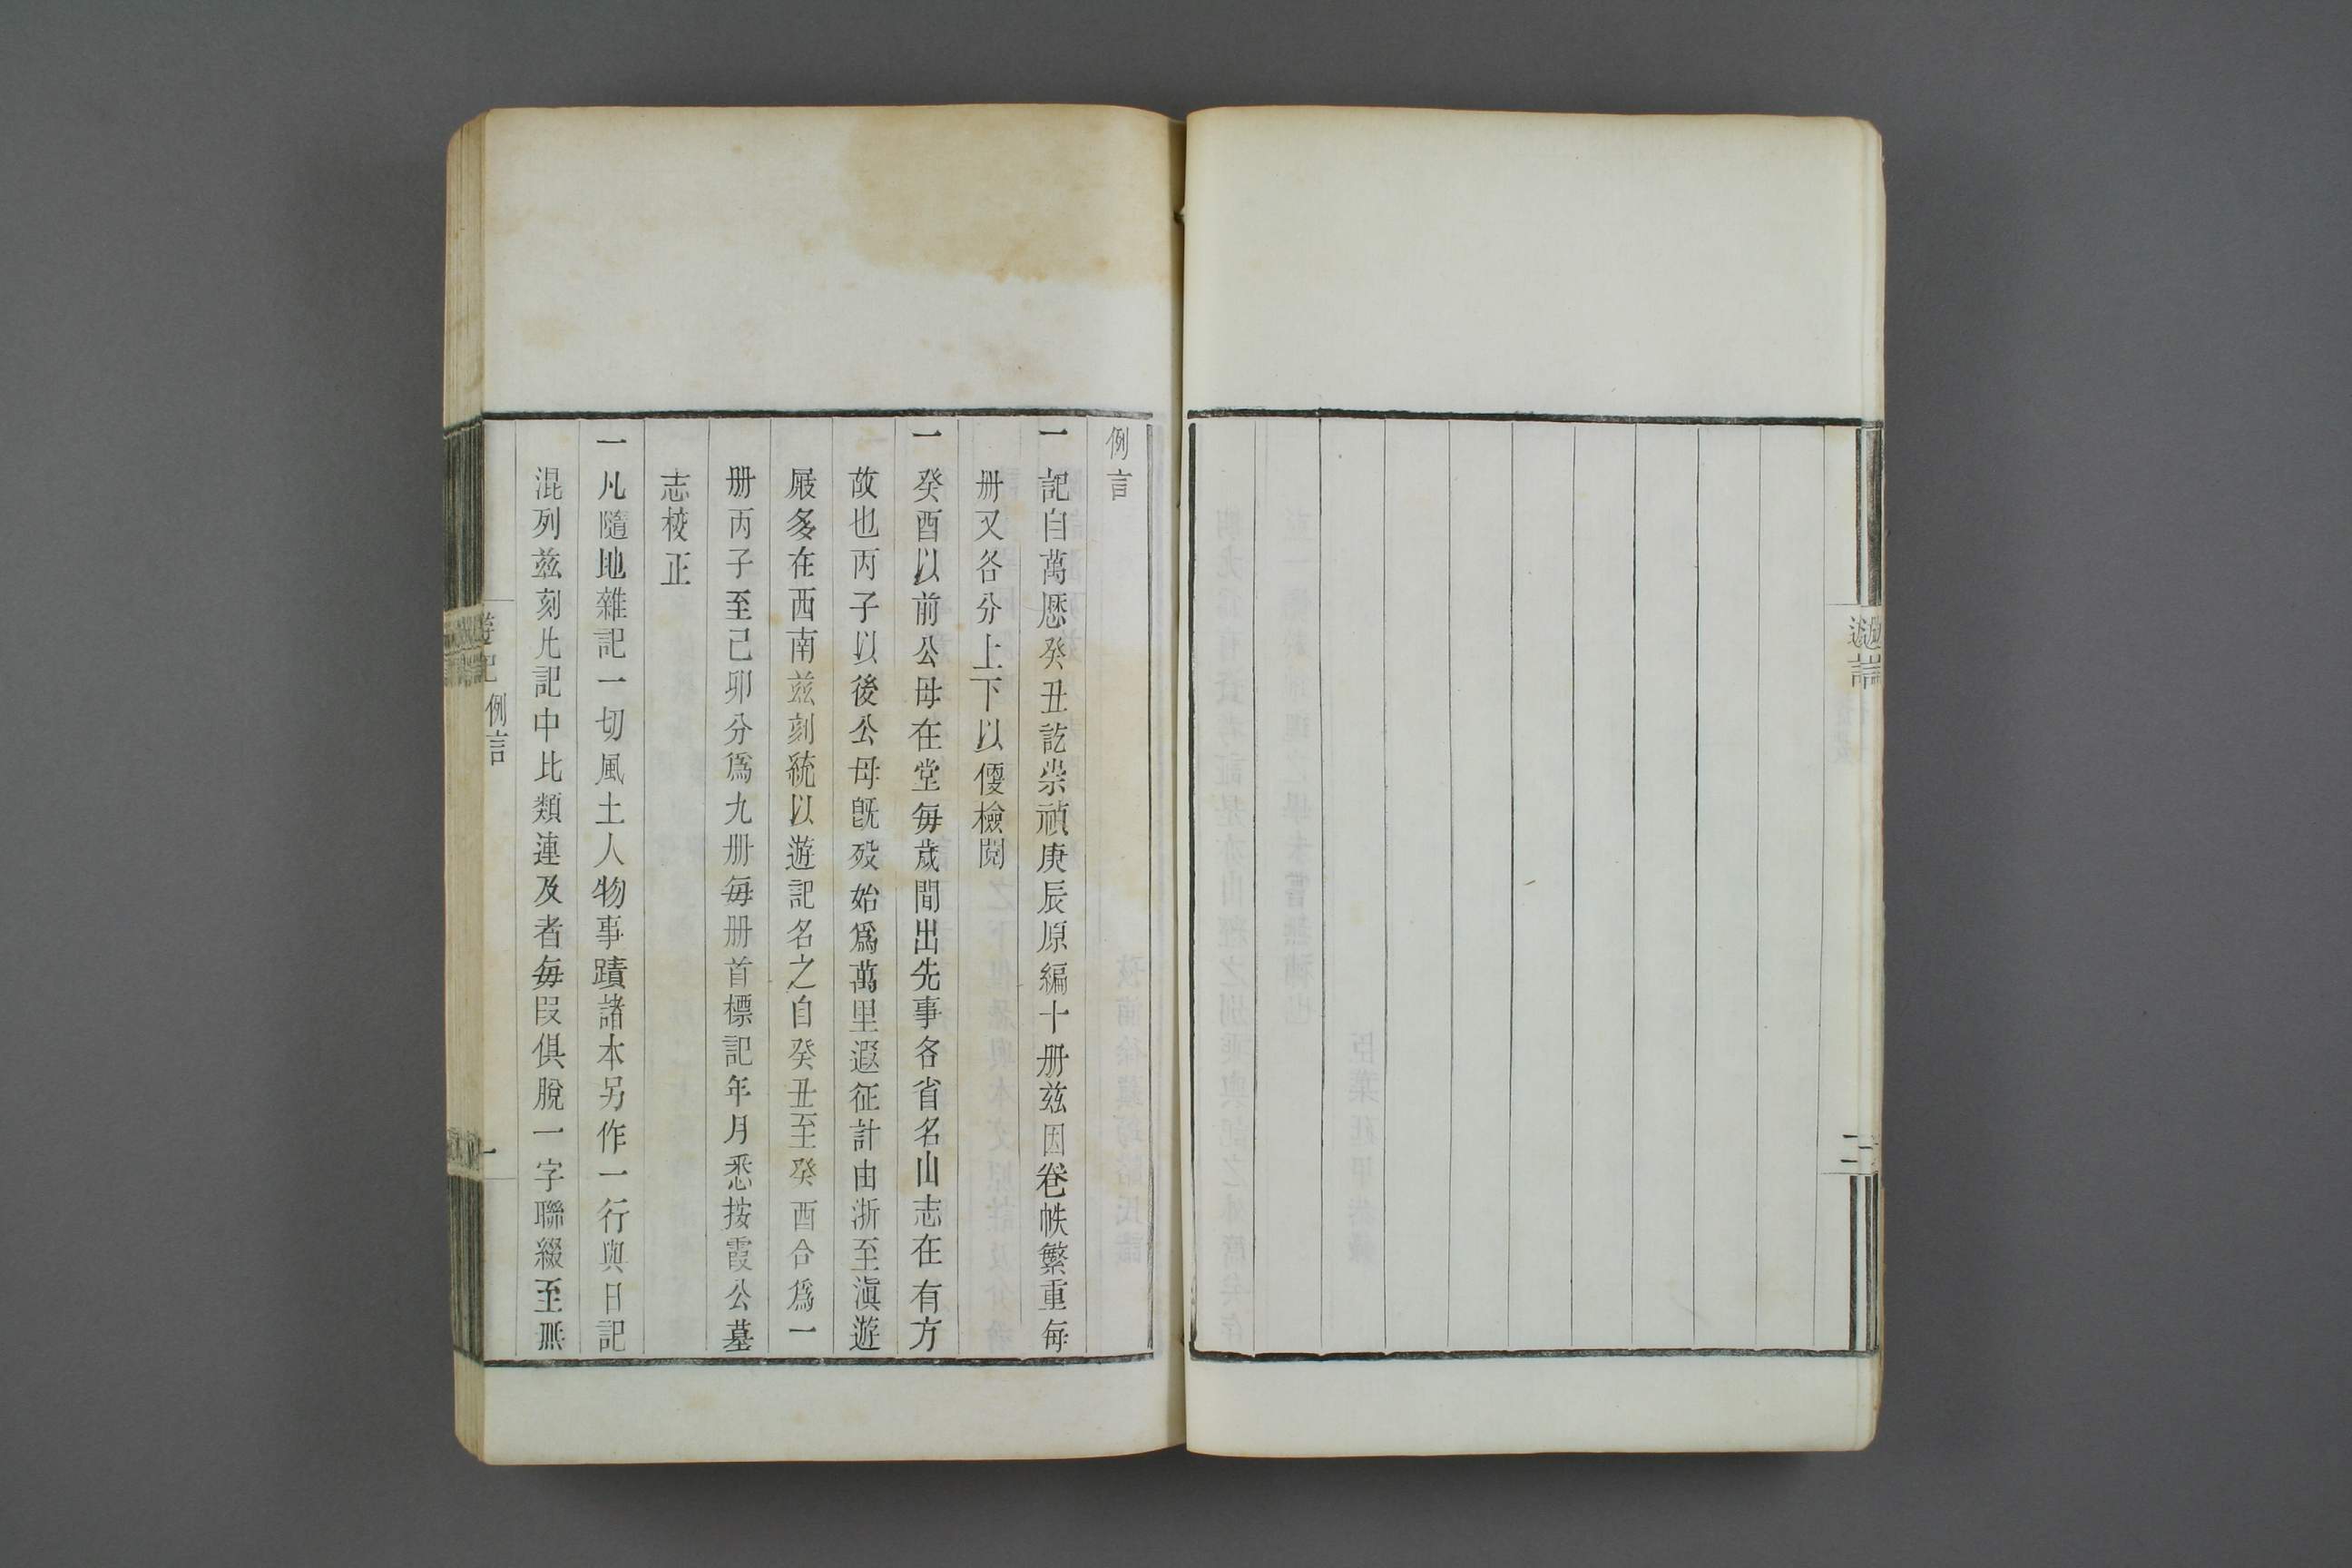 例言
一記自萬厯癸丑訖崇禎庚辰原編十册兹因卷帙繁重每
册又各分上下以㑪檢閲
一癸酉以前公母在堂每歲間出先事各省名山志在有方
故也丙子以後公母旣歿始爲萬里遐征計由浙至滇遊
屐多在西南兹刻統以遊記名之自癸丑至癸酉合爲一
册丙子至己卯分爲九册每册首標記年月悉按霞公墓
志校正
一凡隨地雜記一切風土人物事蹟諸本另作一行與日記
混列兹刻凡記中比類連及者每段俱脫一字聯綴至無
遊記
例言
一
二